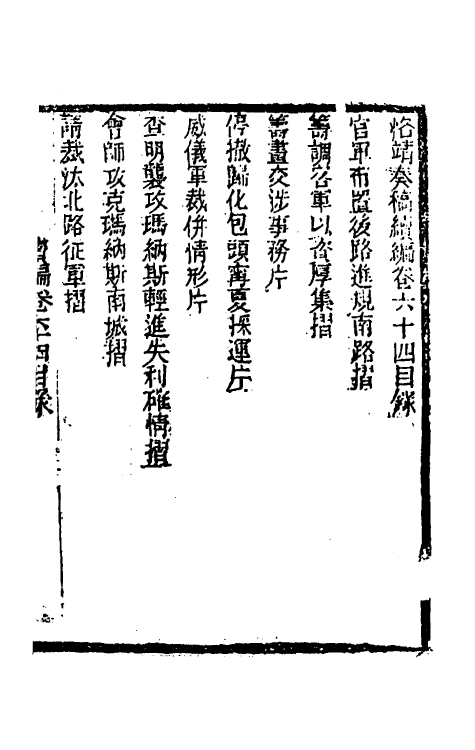 恪靖奏稿續編卷六十四目錄
官軍布置後路進規南路摺
籌調各軍以資厚集摺
籌畫交涉事務片
停撤歸化包頭甯夏採運片
威儀軍裁併情形片
查明襲攻瑪納斯輕進失利確情摺
會師攻克瑪納斯南城摺
請裁汰北路征軍摺
續編卷六十四目錄